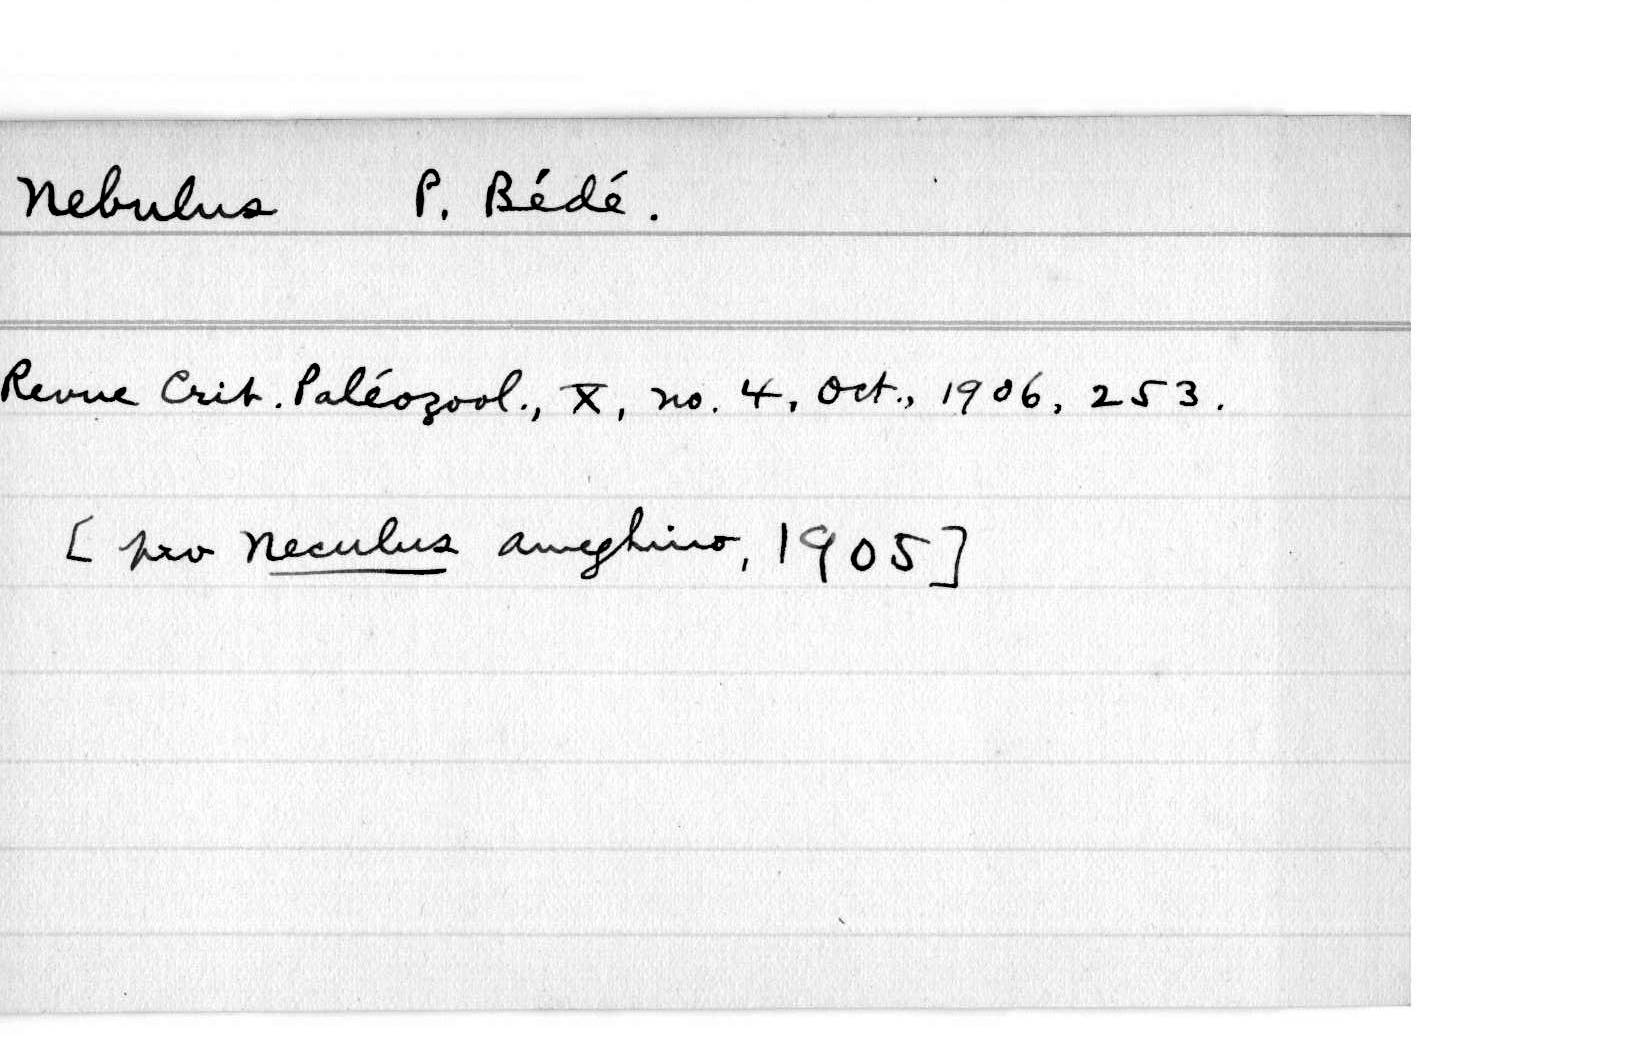 Nebulus P. Bédé.
Revue Crit. Paléozool., X, no. 4, Oct., 1906, 253.
[pro Neculus Ameghino, 1905]